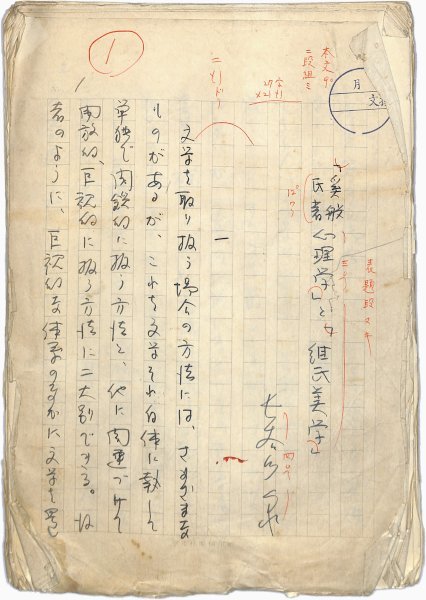 本文9P
二段組ミ
月
文
表題段ヌキ
「奚般氏著心理学」と「維氏美学」
四号
1
一
文学を取り扱う場合の方法には、さまざまな
ものがあるが、これを文学それ自体に執して
単独で閉鎖的に扱う方法と、他に関連づけて
開放的、巨視的に扱う方法に二大別できる。後
者のように、巨視的な体系のなかに文学を置